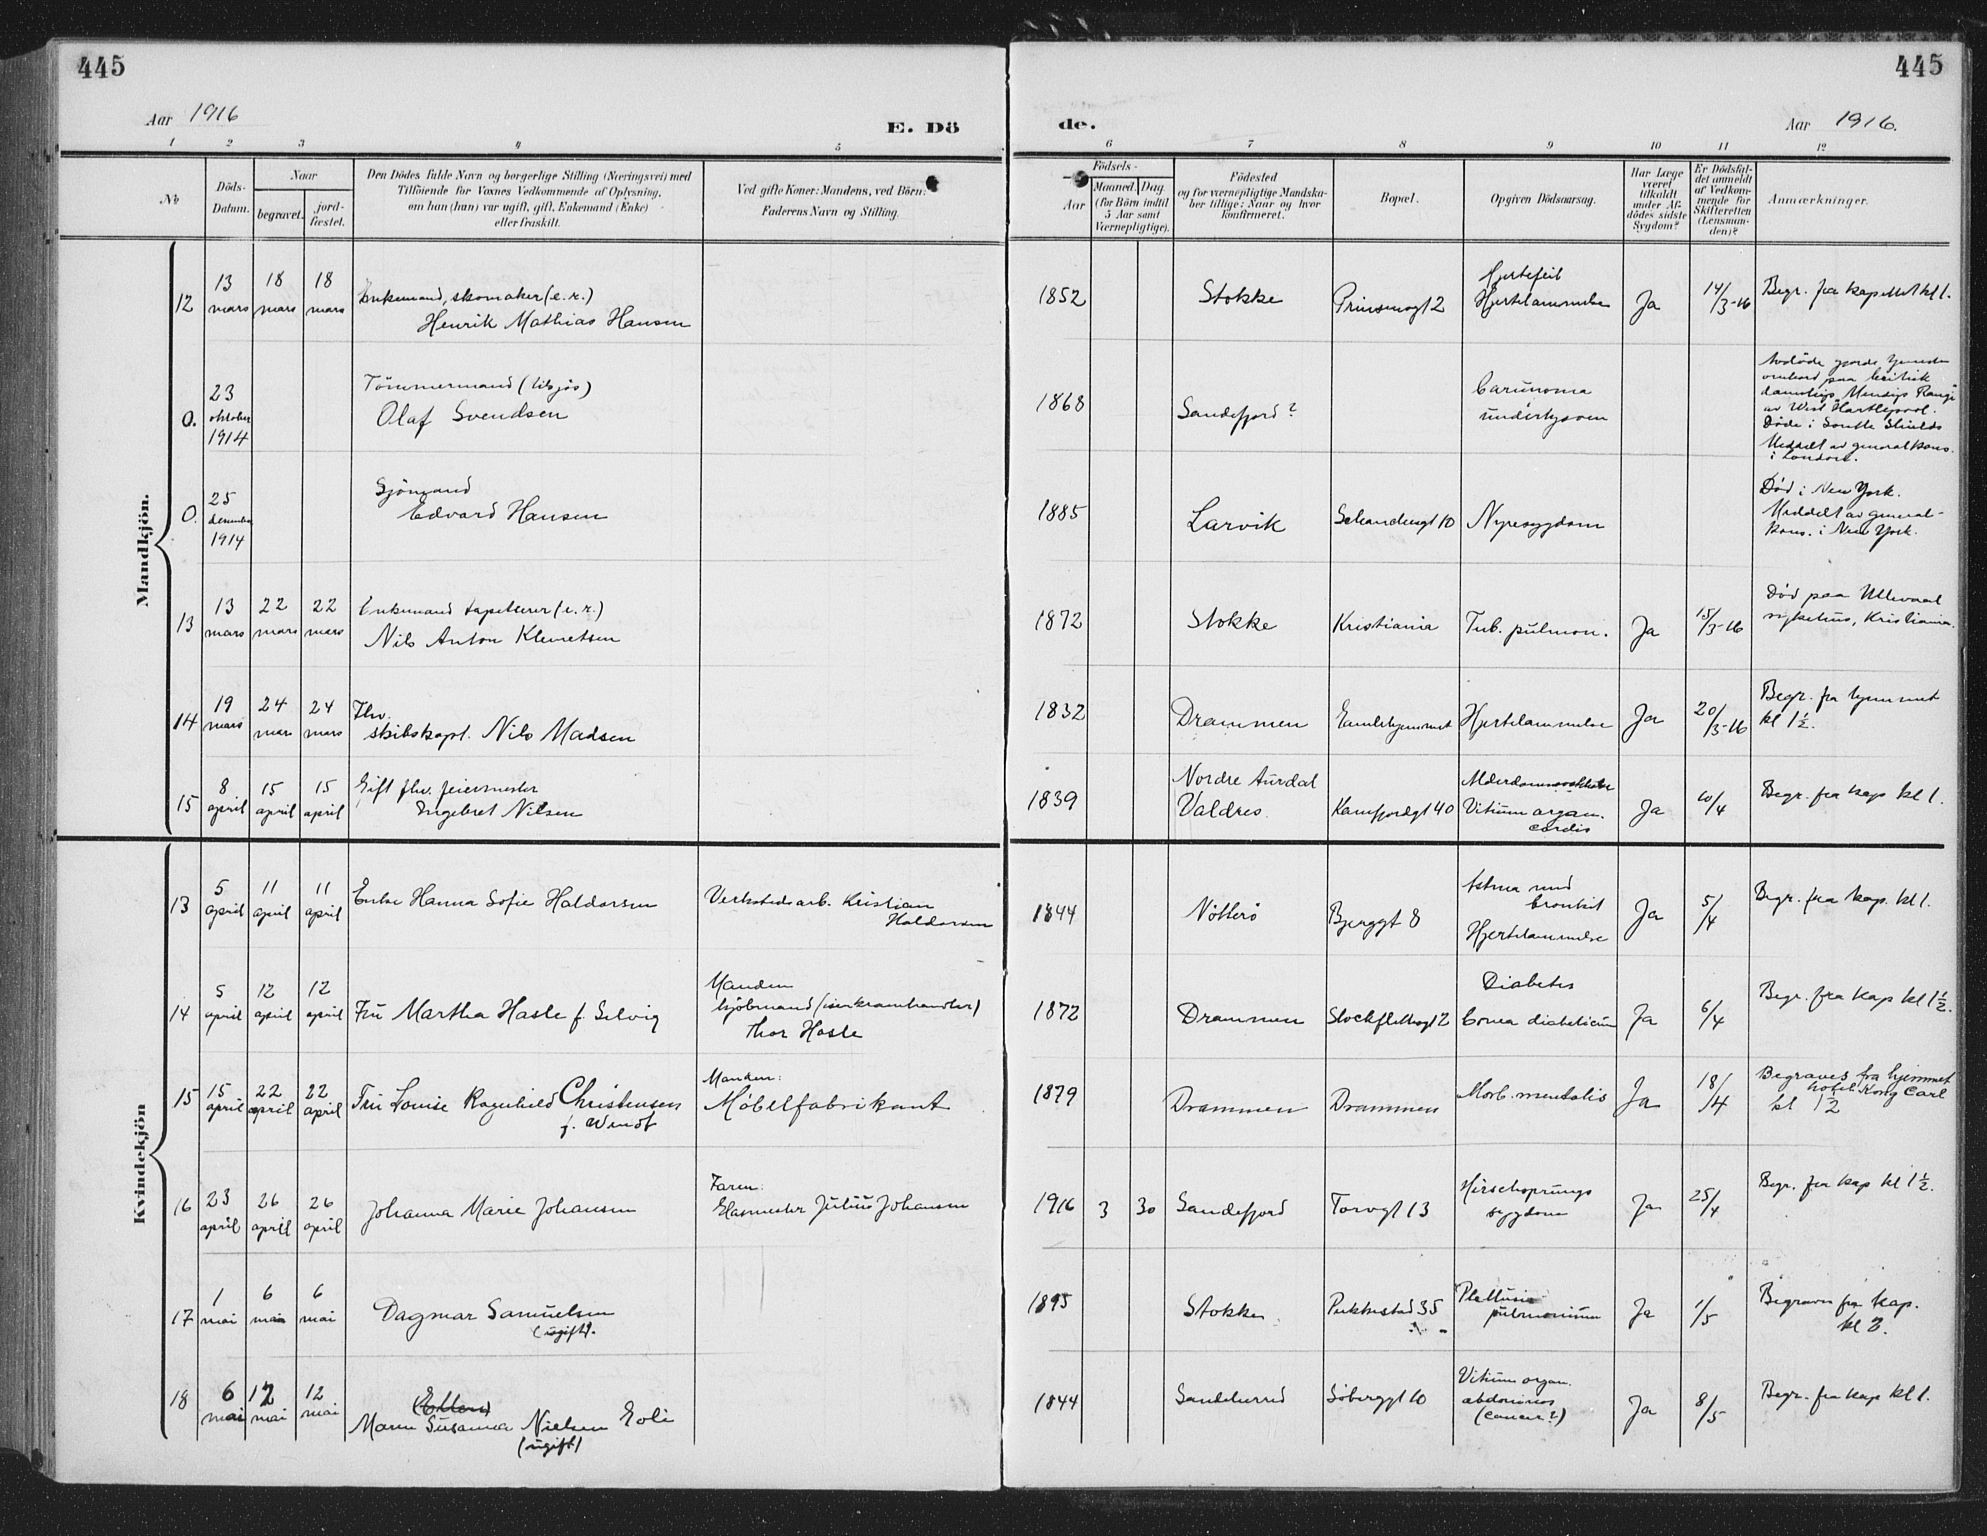 445
445
Aar 1916
E. Dö
de.
Aar 1916.
1 2 3 4 5
6 7 8 9 10 11 12
No
Döds-
Datum.
Naar
begravet.
jord-
fæstet.
Den Dödes fulde Navn og borgerlige Stilling (Næringsvei) med
Tilföiende for Voxnes Vedkommende af Oplysning,
om han (hun) var ugift, gift, Enkemand (Enke)
eller fraskilt.
Ved gifte Koner: Mandens, ved Börn:
Faderens Navn og Stilling.
Födsels-
Aar
Maaned.
Dag.
(for Börn indtil
5 Aar samt
Værnepligtige).
Födested
og for værnepligtige Mandska-
ber tillige: Naar og hvor
konfirmeret.
Bopæl.
Opgiven Dödsaarsag.
Har Læge
været
tilkaldt
under Af-
dödes sidste
Sygdom?
Er Dödsfal-
det anmeldt
af Vedkom-
mende for
Skifteretten
(Lensman-
den)?
Anmærkninger.
Mandkjön.
12
13 mars
18 mars
18 mars
Enkemand, skomaker (e. r.)
Henrik Mathias Hansen
1852
Stokke
Prinsensgt 2
Hjertefeil
Hjertelammelse
Ja
14/3-16
Begr. fra kapellet kl 1.
0.
23
oktober
1914
Tömmermand (tilsjös)
Olaf Svendsen
1868
Sandefjord?
Carcinoma
Avdöde gjorde tjeneste
ombord paa britisk
av West Hartlepool.
Døde i South Shields
Meddelt av generalkons.
i London.
0.
25
desember
1914
Sjömand
Edvard Hansen
1885
Larvik
10
Nyresygdom
Död i New York.
Meddelt av general-
kons. i New York.
13
13 mars
22 mars
22 mars
Enkemand tapetserer (e. r.)
Nils Anton Klemetsen
1872
Stokke
Kristiania
Tub. pulmon.
Ja
15/3-16
Död paa Ullevaal
sykehus, Kristiania.
14
19 mars
24 mars
24 mars
Fhv.
skibskapt. Nils Madsen
1832
Drammen
Gamlehjemmet
Hjertelammelse
Ja
20/3-16
Begr. fra hjemmet
kl 1½.
15
8 april
15 april
15 april
Gift fhv. feiermester
Engebret Nilsen
1839
Nordre Aurdal
Valdres.
Kamfjordgt 40
Vitium organ.
cordis
Ja
10/4
Begr. fra kap kl 1.
Kvindekjön
13
5 april
11 april
11 april
Enke Hanna Sofie Haldorsen
Verkstedsarb. Kristian
Haldorsen
1844
Nötterö
Bjerggt 8
Astma med
bronkit
Hjertelammelse
Ja
5/4
Begr. fra kap. kl 1.
14
5 april
12 april
12 april
Fru Martha Hasle f. Selvig
Manden
kjöbmand (isenkramhandler)
Thor Hasle
1872
Drammen
Stockflethsgt 2
Diabetes
Coma diabeticum
Ja
6/4
Begr. fra kap kl 1½.
15
15 april
22 april
22 april
Fru Louise Ragnhild Christensen
f. Windt
Manden:
Møbelfabrikant
1879
Drammen
Drammen
Morb. mentalis
Ja
18/4
Begraves fra hjemmet
hotel Kong Carl
kl 1½
16
23 april
26 april
26 april
Johanna Marie Johansen
Faren:
Glasmester Julius Johansen
1916
3
30
Sandefjord
Torvgt 13
Hirschsprungs
sygdom
Ja
25/4
Begr. fra kap kl 1½.
17
1 mai
6 mai
6 mai
Dagmar Samuelsen
(ugift).
1895
Stokke
Pukkestad 35
pulmonum
Ja
1/5
Begraves fra kap.
kl 2.
18
6 mai
12 mai
12 mai
(Ellen)
Maren Susanna Nielsen Eoli
(ugift)
1844
Sandeherred
Söberggt 10
Vitium organ.
abdominis
(cancer?)
Ja
8/5
Begr. fra kap kl 1.